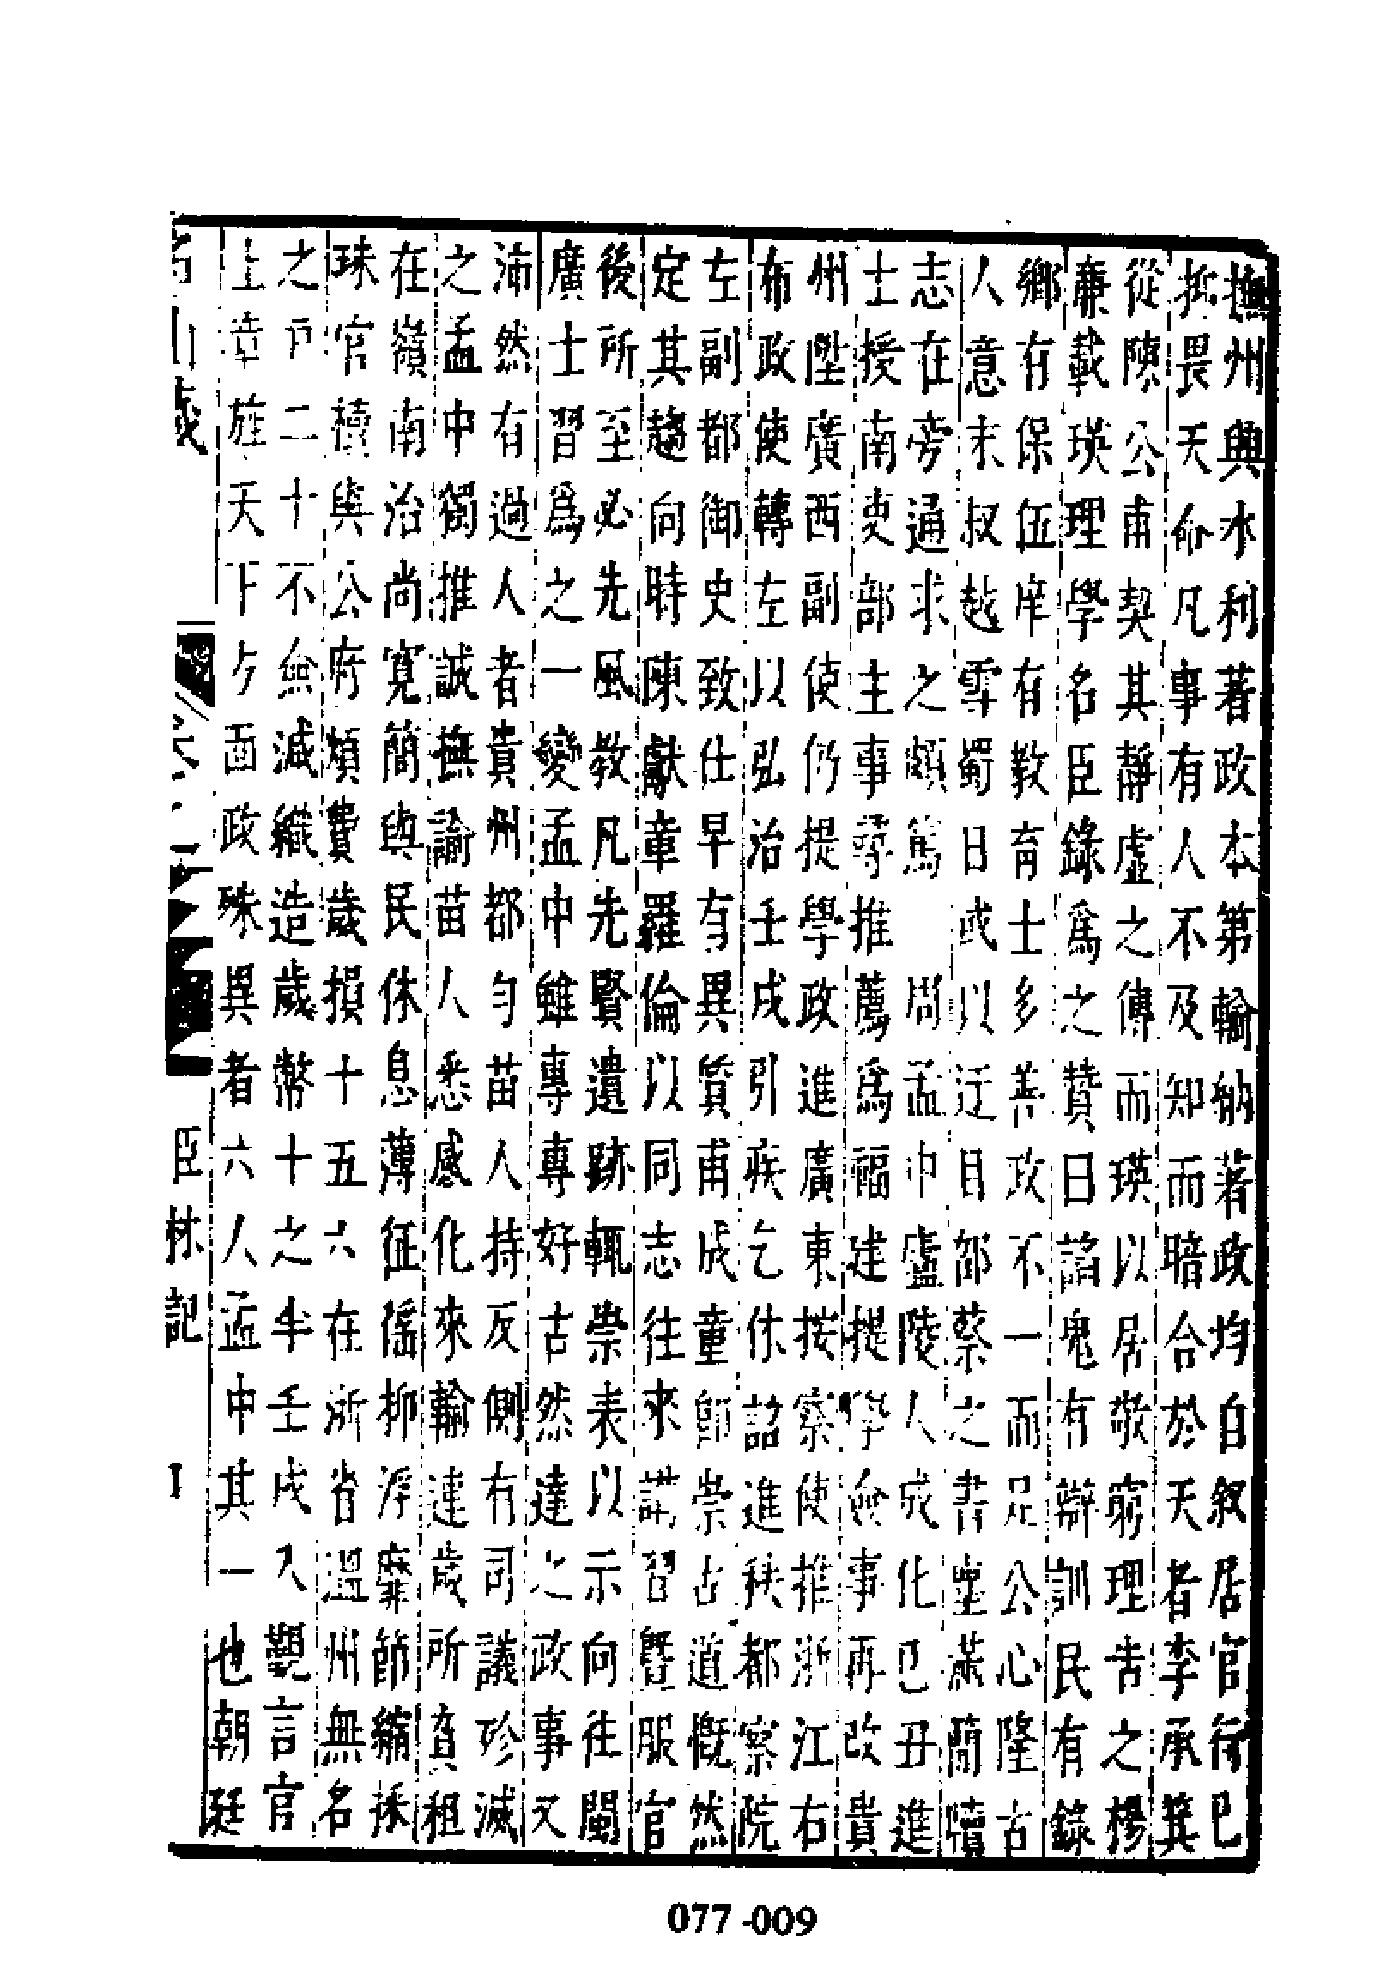 撫州興水利著政本第輸納著政均自叙居官行己
抑畏天命凡事有人不及知而暗合於天者李承箕
從陳公甫契其靜虛之傳而瑛以居敬窮理告之楊
廉載瑛理學名臣錄爲之贊曰諂鬼有辯訓民有錄
鄉有保伍庠有教育士多善政不一而足公心隆古
人意末叔越雪蜀日或以迂目部蔡之書塵蕭簡牘
志在旁通求之頗篤　周孟中廬陵人成化己丑進
士授南吏部主事尋推薦爲福建提學僉事再改貴
州陞廣西副使仍提學政進廣東按察使推浙江右
布政使轉左以弘治壬戌引疾乞休詔進秩都察院
左副都御史致仕早有異質甫成童卽崇古道慨然
定其趨向時陳獻章羅倫以同志往來講習暨服官
後所至必先風教凡先賢遺跡輒崇表以示向往閩
廣士習爲之一變孟中雖專專好古然達之政事又
沛然有過人者貴州都勻苗人持反側有司議殄滅
之孟中獨推誠撫諭苗人悉感化來輸連歲所負租
在嶺南治尚寬簡與民休息薄征徭抑浮靡節縮採
珠官櫝與公府煩費歲損十五六在浙省溫州無名
之戸二十不僉減織造歲幣十之半壬戌入覲言官
上章旌天下方面政殊異者六人孟中其一也朝廷
名山藏
臣林記
077-009